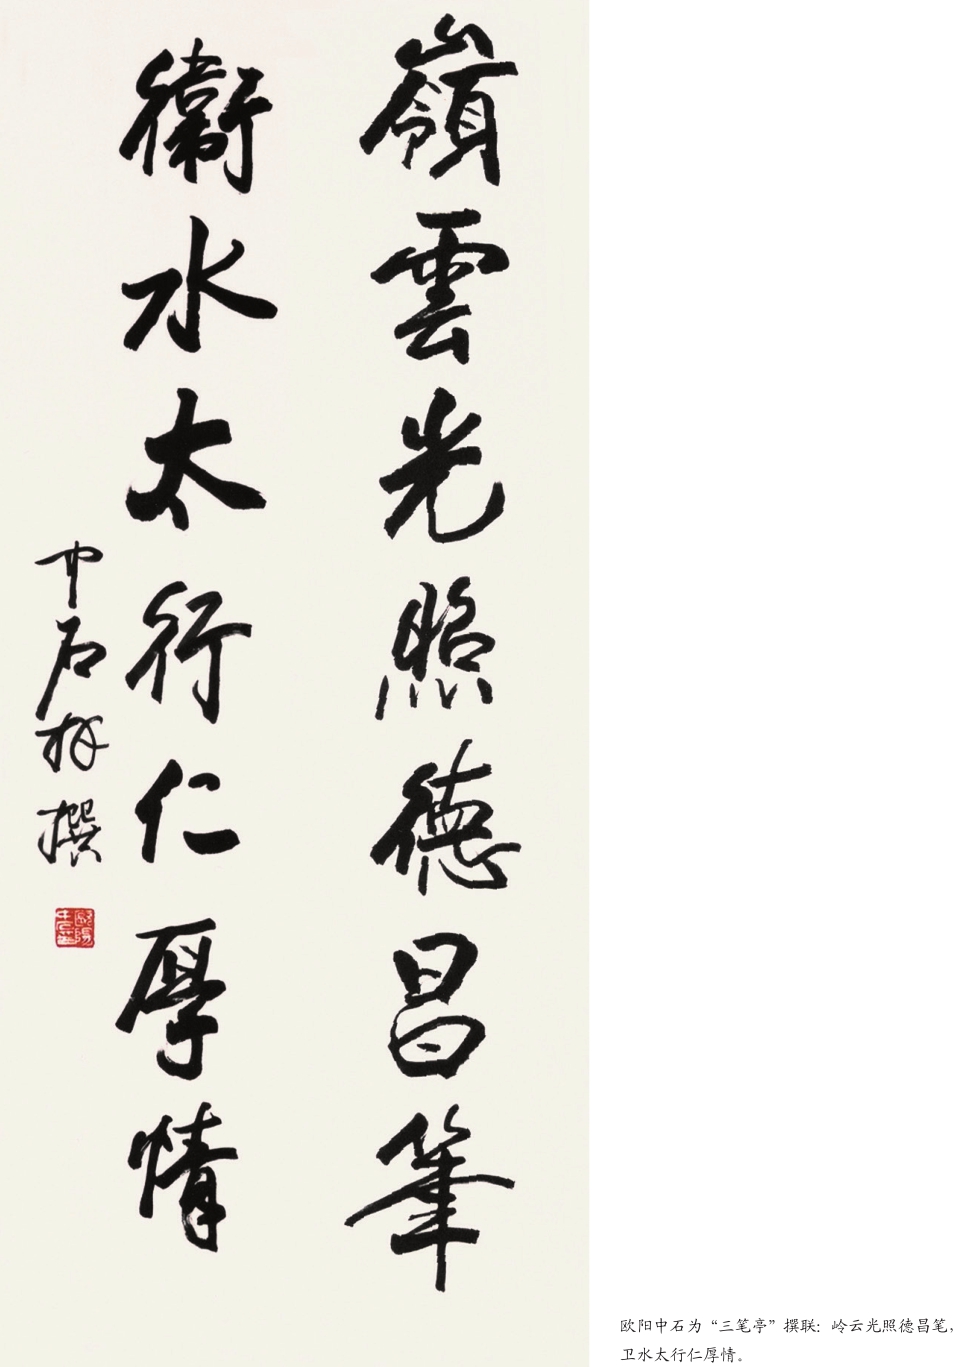 嶺雲光照德昌筆
衞水太行仁厚情
中石拜撰
欧阳中石为“三笔亭”撰联：岭云光照德昌笔，
卫水太行仁厚情。